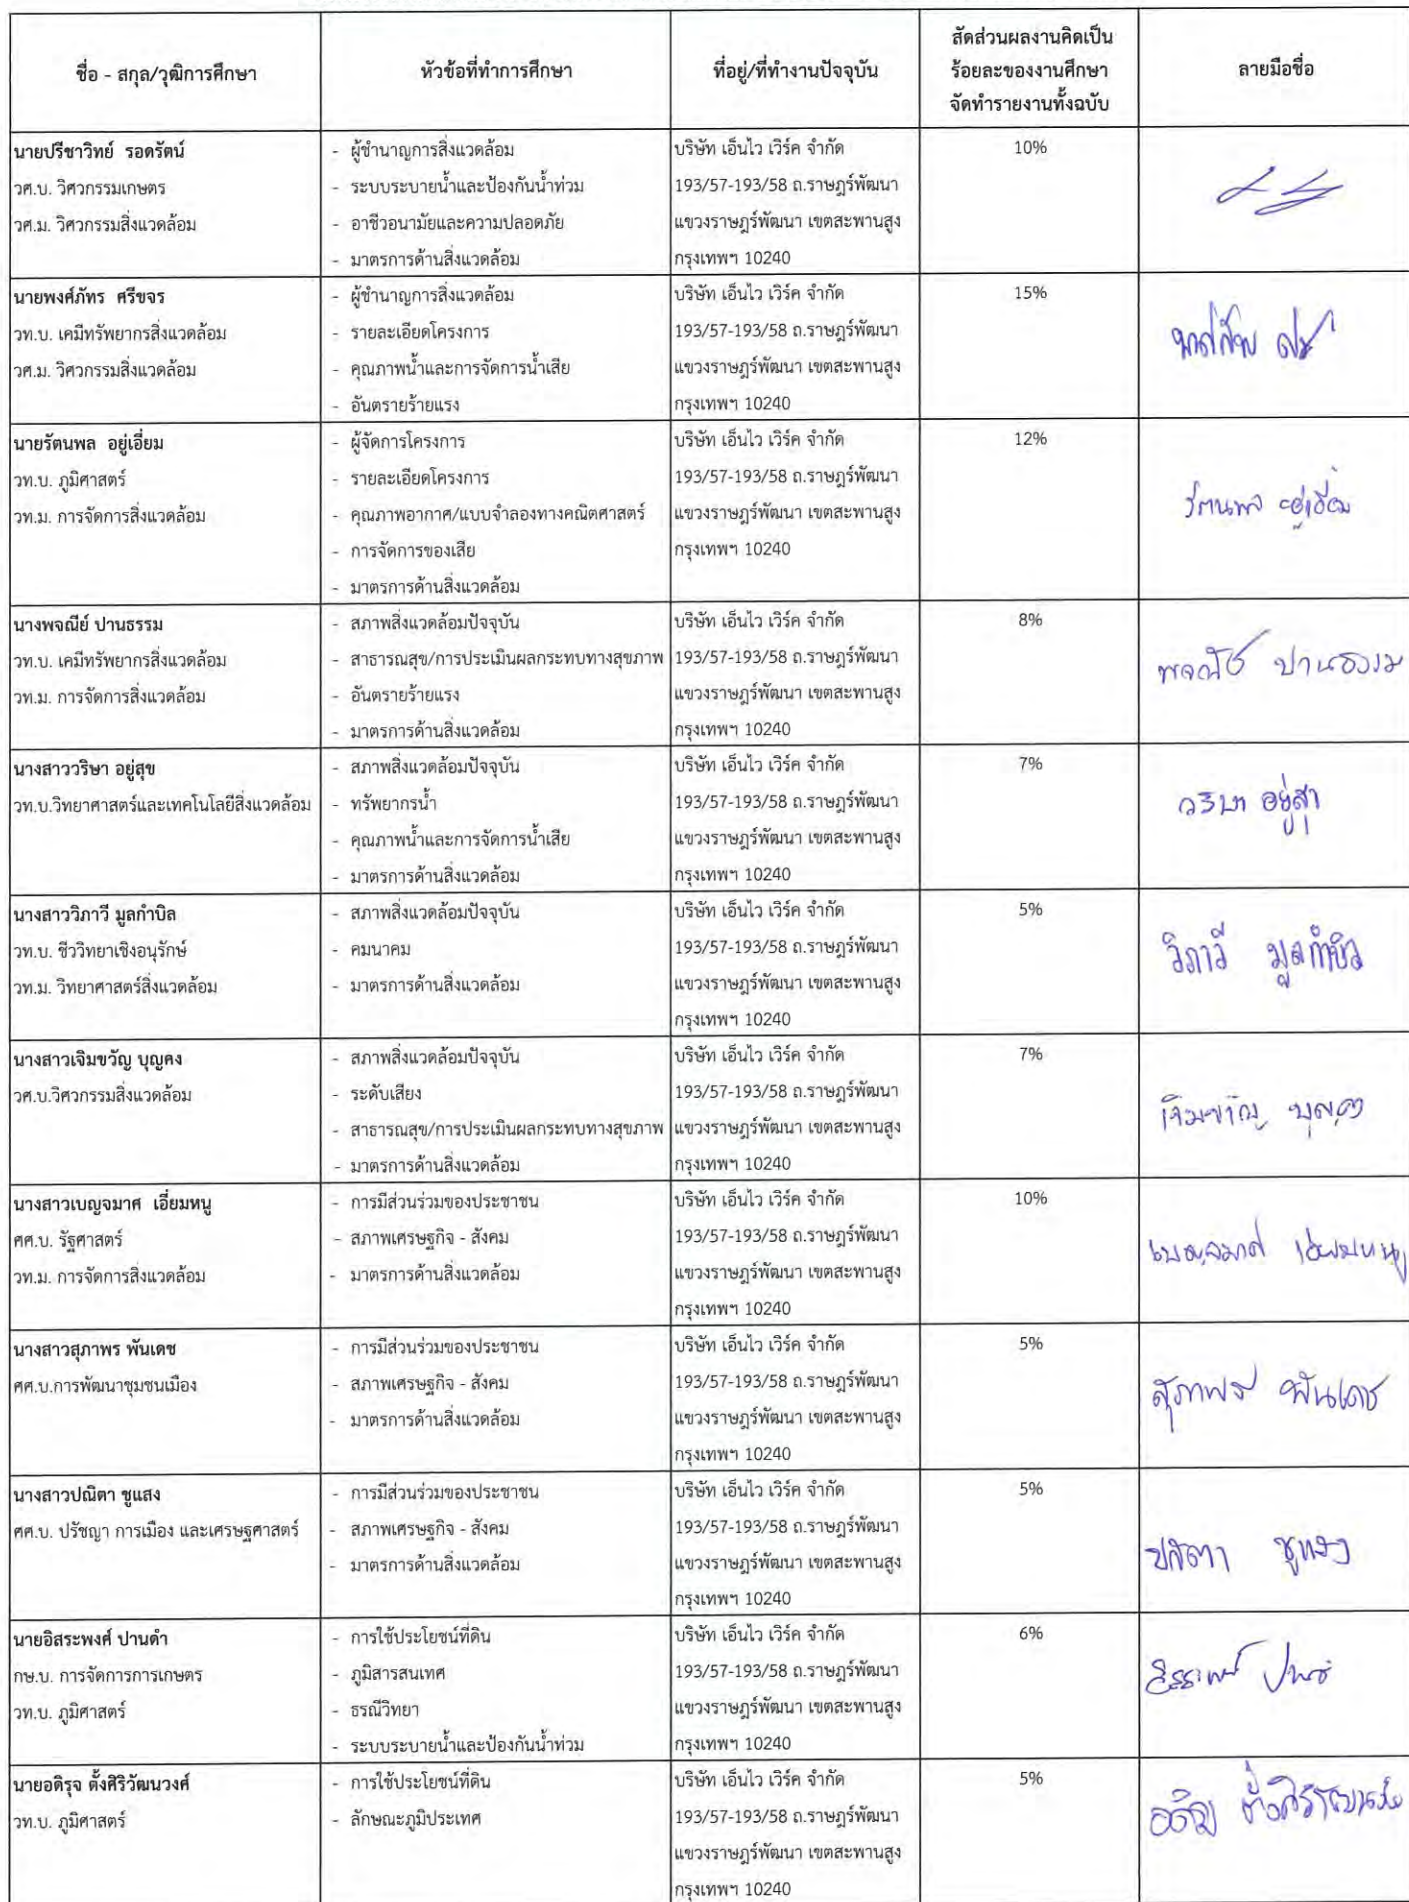 ชื่อ - สกุล/วุฒิการศึกษา
หัวข้อที่ทำการศึกษา
ที่อยู่/ที่ทำงานปัจจุบัน
สัดส่วนผลงานคิดเป็น
ร้อยละของงานศึกษา
จัดทำรายงานทั้งฉบับ
ลายมือชื่อ
นายปรีชาวิทย์ รอดรัตน์
วศ.บ. วิศวกรรมเกษตร
วศ.ม. วิศวกรรมสิ่งแวดล้อม
- ผู้ชำนาญการสิ่งแวดล้อม
- ระบบระบายน้ำและป้องกันน้ำท่วม
- อาชีวอนามัยและความปลอดภัย
- มาตรการด้านสิ่งแวดล้อม
บริษัท เอ็นไว เวิร์ค จำกัด
193/57-193/58 ถ.ราษฎร์พัฒนา
แขวงราษฎร์พัฒนา เขตสะพานสูง
กรุงเทพฯ 10240
10%
นายพงศ์ภัทร ศรีขจร
วท.บ. เคมีทรัพยากรสิ่งแวดล้อม
วศ.ม. วิศวกรรมสิ่งแวดล้อม
- ผู้ชำนาญการสิ่งแวดล้อม
- รายละเอียดโครงการ
- คุณภาพน้ำและการจัดการน้ำเสีย
- อันตรายร้ายแรง
บริษัท เอ็นไว เวิร์ค จำกัด
193/57-193/58 ถ.ราษฎร์พัฒนา
แขวงราษฎร์พัฒนา เขตสะพานสูง
กรุงเทพฯ 10240
15%
นายรัตนพล อยู่เอี่ยม
วท.บ. ภูมิศาสตร์
วท.ม. การจัดการสิ่งแวดล้อม
- ผู้จัดการโครงการ
- รายละเอียดโครงการ
- คุณภาพอากาศ/แบบจำลองทางคณิตศาสตร์
- การจัดการของเสีย
- มาตรการด้านสิ่งแวดล้อม
บริษัท เอ็นไว เวิร์ค จำกัด
193/57-193/58 ถ.ราษฎร์พัฒนา
แขวงราษฎร์พัฒนา เขตสะพานสูง
กรุงเทพฯ 10240
12%
รัตนพล อยู่เอี่ยม
นางพจณีย์ ปานธรรม
วท.บ. เคมีทรัพยากรสิ่งแวดล้อม
วท.ม. การจัดการสิ่งแวดล้อม
- สภาพสิ่งแวดล้อมปัจจุบัน
- สาธารณสุข/การประเมินผลกระทบทางสุขภาพ
- อันตรายร้ายแรง
- มาตรการด้านสิ่งแวดล้อม
บริษัท เอ็นไว เวิร์ค จำกัด
193/57-193/58 ถ.ราษฎร์พัฒนา
แขวงราษฎร์พัฒนา เขตสะพานสูง
กรุงเทพฯ 10240
8%
พจณีย์ ปานธรรม
นางสาววริษา อยู่สุข
วท.บ.วิทยาศาสตร์และเทคโนโลยีสิ่งแวดล้อม
- สภาพสิ่งแวดล้อมปัจจุบัน
- ทรัพยากรน้ำ
- คุณภาพน้ำและการจัดการน้ำเสีย
- มาตรการด้านสิ่งแวดล้อม
บริษัท เอ็นไว เวิร์ค จำกัด
193/57-193/58 ถ.ราษฎร์พัฒนา
แขวงราษฎร์พัฒนา เขตสะพานสูง
กรุงเทพฯ 10240
7%
วริษา อยู่สุข
นางสาววิภาวี มูลกำบิล
วท.บ. ชีววิทยาเชิงอนุรักษ์
วท.ม. วิทยาศาสตร์สิ่งแวดล้อม
- สภาพสิ่งแวดล้อมปัจจุบัน
- คมนาคม
- มาตรการด้านสิ่งแวดล้อม
บริษัท เอ็นไว เวิร์ค จำกัด
193/57-193/58 ถ.ราษฎร์พัฒนา
แขวงราษฎร์พัฒนา เขตสะพานสูง
กรุงเทพฯ 10240
5%
วิภาวี มูลกำบิล
นางสาวเจิมขวัญ บุญคง
วศ.บ.วิศวกรรมสิ่งแวดล้อม
- สภาพสิ่งแวดล้อมปัจจุบัน
- ระดับเสียง
- สาธารณสุข/การประเมินผลกระทบทางสุขภาพ
- มาตรการด้านสิ่งแวดล้อม
บริษัท เอ็นไว เวิร์ค จำกัด
193/57-193/58 ถ.ราษฎร์พัฒนา
แขวงราษฎร์พัฒนา เขตสะพานสูง
กรุงเทพฯ 10240
7%
เจิมขวัญ บุญคง
นางสาวเบญจมาศ เอี่ยมหนู
ศศ.บ. รัฐศาสตร์
วท.ม. การจัดการสิ่งแวดล้อม
- การมีส่วนร่วมของประชาชน
- สภาพเศรษฐกิจ - สังคม
- มาตรการด้านสิ่งแวดล้อม
บริษัท เอ็นไว เวิร์ค จำกัด
193/57-193/58 ถ.ราษฎร์พัฒนา
แขวงราษฎร์พัฒนา เขตสะพานสูง
กรุงเทพฯ 10240
10%
เบญจมาศ เอี่ยมหนู
นางสาวสุภาพร พันเดช
ศศ.บ.การพัฒนาชุมชนเมือง
- การมีส่วนร่วมของประชาชน
- สภาพเศรษฐกิจ - สังคม
- มาตรการด้านสิ่งแวดล้อม
บริษัท เอ็นไว เวิร์ค จำกัด
193/57-193/58 ถ.ราษฎร์พัฒนา
แขวงราษฎร์พัฒนา เขตสะพานสูง
กรุงเทพฯ 10240
5%
สุภาพร พันเดช
นางสาวปณิตา ชูแสง
ศศ.บ. ปรัชญา การเมือง และเศรษฐศาสตร์
- การมีส่วนร่วมของประชาชน
- สภาพเศรษฐกิจ - สังคม
- มาตรการด้านสิ่งแวดล้อม
บริษัท เอ็นไว เวิร์ค จำกัด
193/57-193/58 ถ.ราษฎร์พัฒนา
แขวงราษฎร์พัฒนา เขตสะพานสูง
กรุงเทพฯ 10240
5%
ปณิตา ชูแสง
นายอิสระพงศ์ ปานดำ
กษ.บ. การจัดการการเกษตร
วท.บ. ภูมิศาสตร์
- การใช้ประโยชน์ที่ดิน
- ภูมิสารสนเทศ
- ธรณีวิทยา
- ระบบระบายน้ำและป้องกันน้ำท่วม
บริษัท เอ็นไว เวิร์ค จำกัด
193/57-193/58 ถ.ราษฎร์พัฒนา
แขวงราษฎร์พัฒนา เขตสะพานสูง
กรุงเทพฯ 10240
6%
นายอดิรุจ ตั้งศิริวัฒนวงศ์
วท.บ. ภูมิศาสตร์
- การใช้ประโยชน์ที่ดิน
- ลักษณะภูมิประเทศ
บริษัท เอ็นไว เวิร์ค จำกัด
193/57-193/58 ถ.ราษฎร์พัฒนา
แขวงราษฎร์พัฒนา เขตสะพานสูง
กรุงเทพฯ 10240
5%